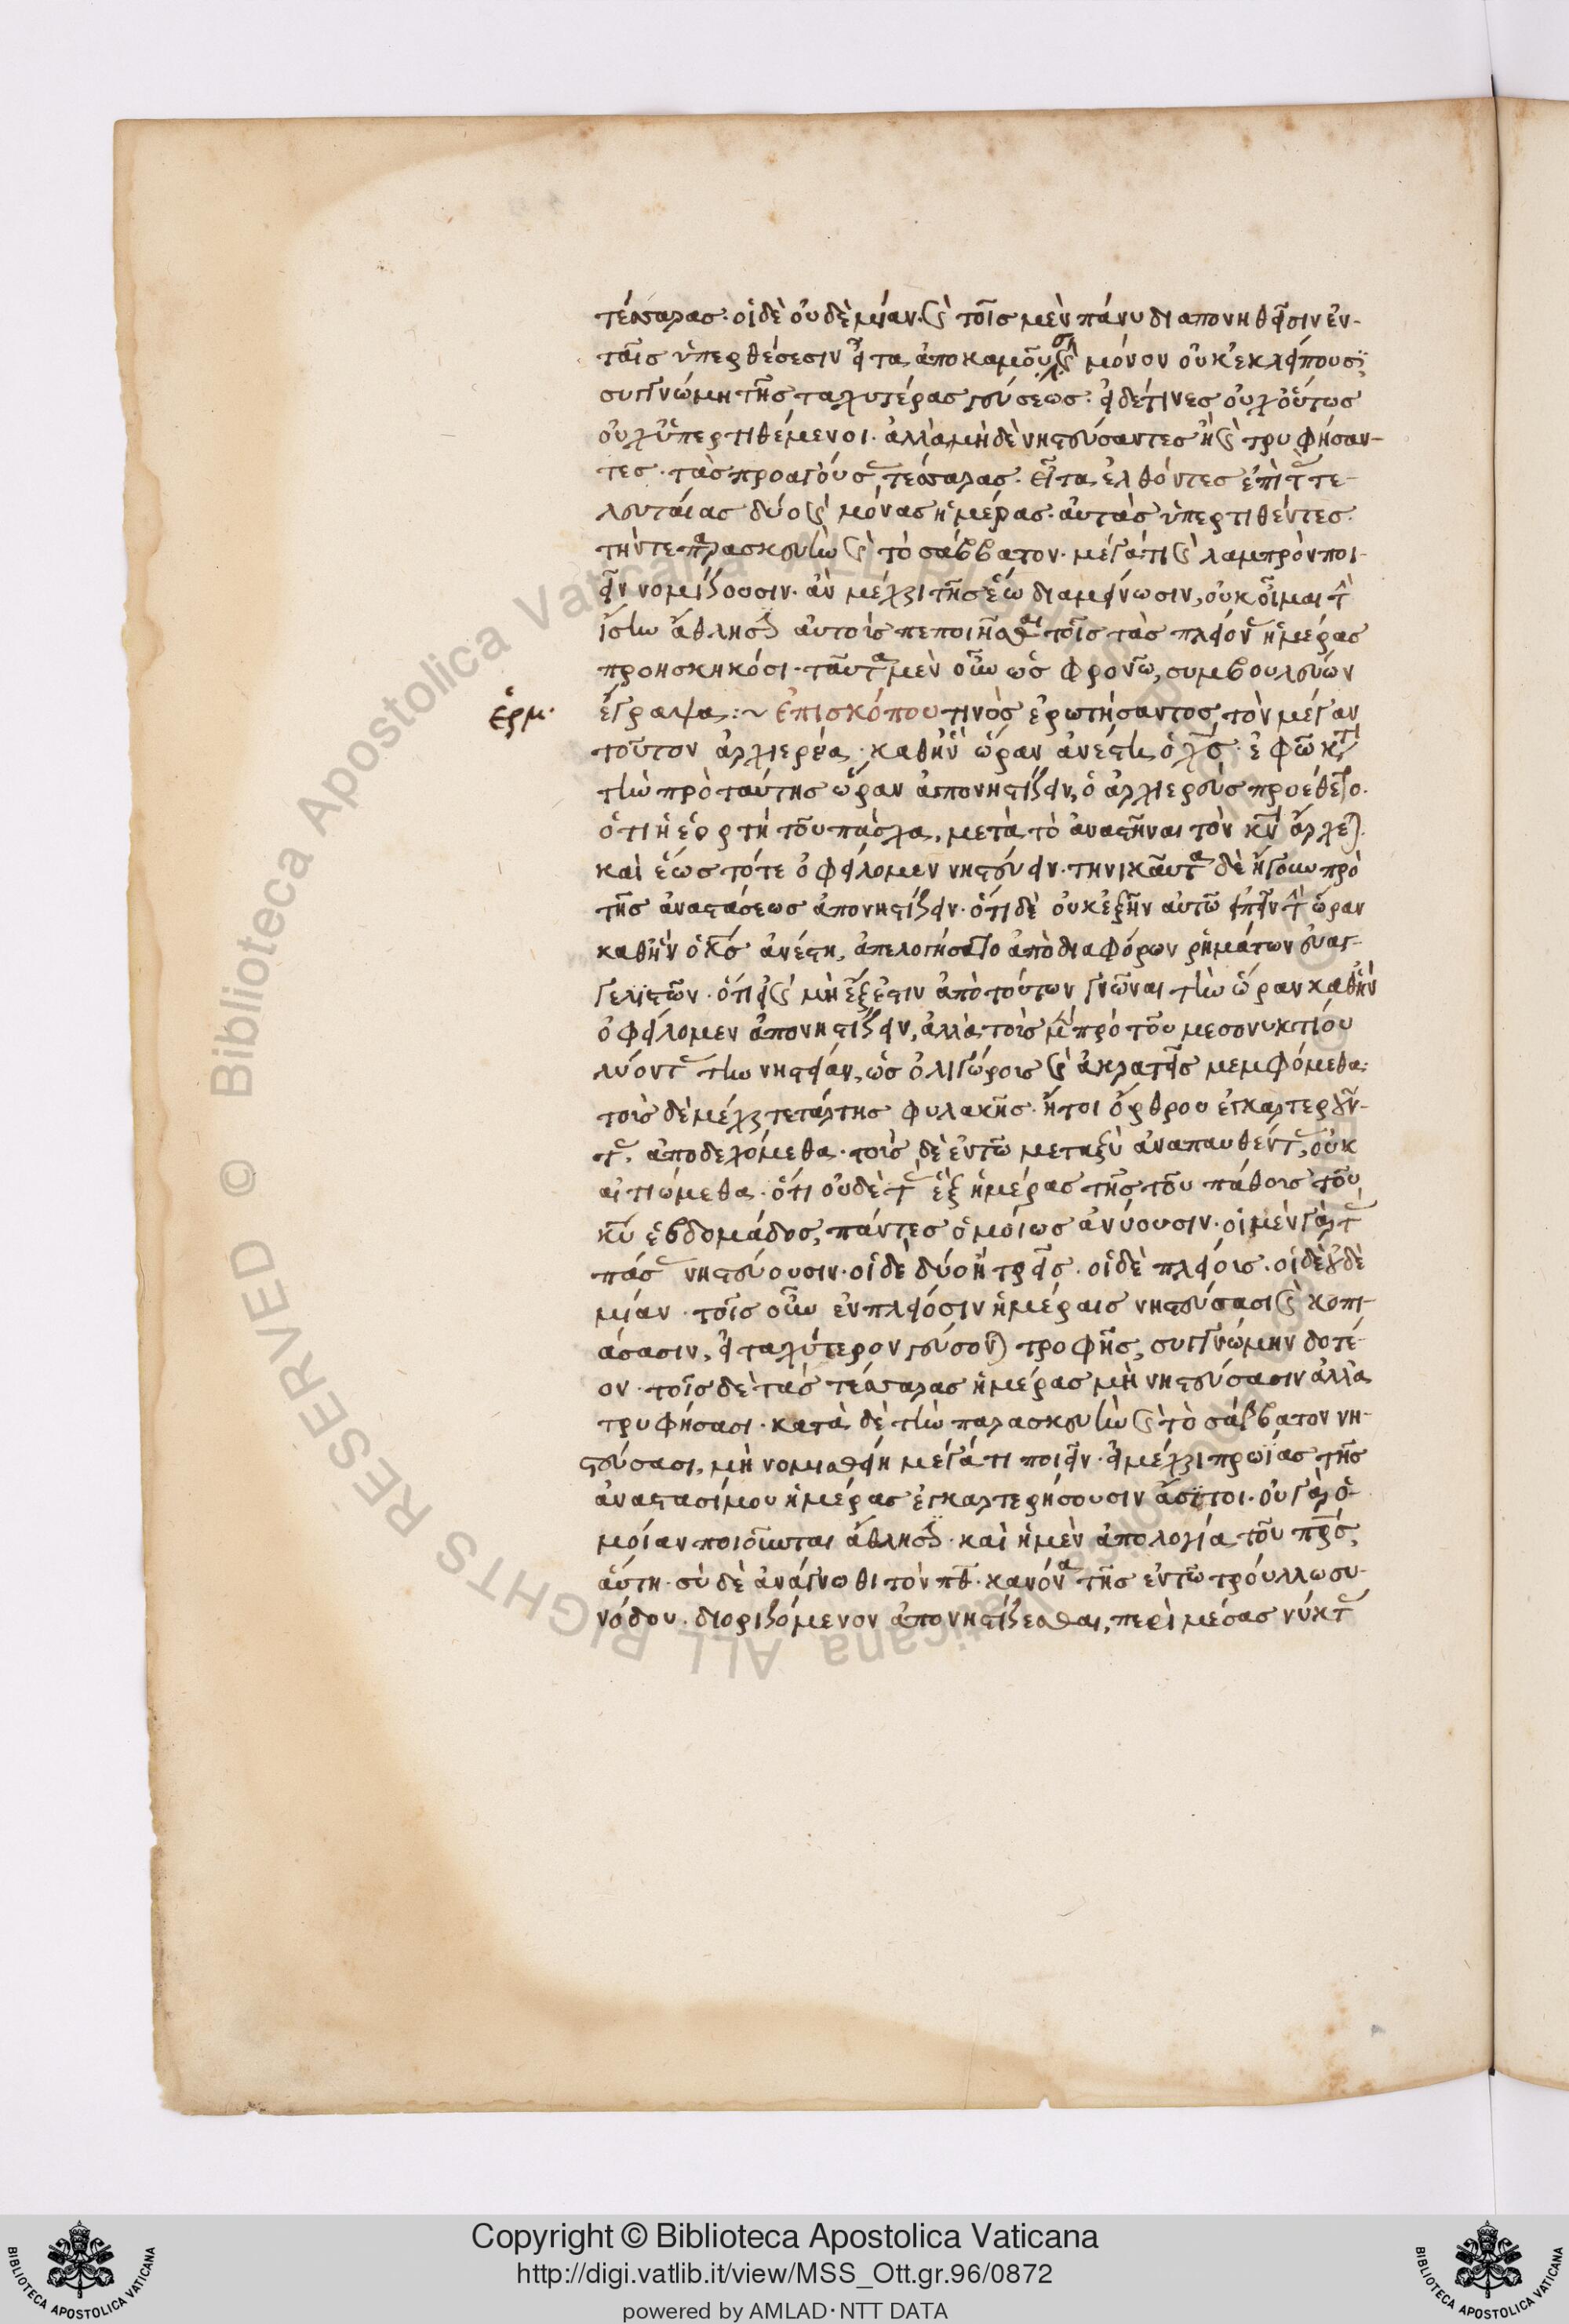 τέσσαρας· οἱ δὲ οὐδὲ μίαν· καὶ τοῖς μὲν πάνυ διαπονηθεῖσιν ἐν
ταῖς ὑπερθέσεσιν εἶτα ἀποκαμοῦσι καὶ μόνον οὐκ ἐκλείπουσι,
συγγνώμη τῆς ταχυτέρας γεύσεως· εἰ δέ τινες οὐχ οὕτως
οὐχ ὑπερτιθέμενοι· ἀλλὰ μὴ δὲ νηστεύσαντες ἢ καὶ τρυφήσαν-
τες· τὰς προαγούσας τέσσαρας· εἶτα ἐλθόντες ἐπὶ τὰς τε-
λευταίας δύο καὶ μόνας ἡμέρας· αὐτὰς ὑπερτιθέντες·
τήν τε παρασκευὴν καὶ τὸ σάββατον· μέγα τι καὶ λαμπρὸν ποι-
εῖν νομίζουσιν· ἂν μέχρι τῆς ἕω διαμείνωσιν, οὐκ οἶμαι τὴν
ἴσην ἄθλησιν αὐτοὺς πεποιῆσθαι τοῖς τὰς πλείονας ἡμέρας
προησκηκόσι· ταῦτα μὲν οὖν ὡς φρονῶ, συμβουλεύων
ἑρμ·
ἔγραψα :~ Ἐπισκόπου τινὸς ἐρωτήσαντος τὸν μέγαν
τοῦτον ἀρχιερέα· καθ' ἣν ὥραν ἀνέστη ὁ χς· ἐφ' ᾧ κατὰ
τὴν πρὸ ταύτης ὥραν ἀπονηστίζειν, ὁ ἀρχιερεὺς προέθετο·
ὅτι ἡ ἑορτὴ τοῦ πάσχα, μετὰ τὸ ἀναστῆναι τὸν κν ἄρχεται·
καὶ ἕως τότε ὀφείλομεν νηστεύειν· τηνικαῦτα δὲ ἤγουν πρὸ
τῆς ἀναστάσεως ἀπονηστίζειν· ὅτι δὲ οὐκ ἐξῆν αὐτῷ εἰπεῖν τὴν ὥραν
καθ' ἣν ὁ κς ἀνέστη, ἀπελογήσατο ἀπὸ διαφόρων ῥημάτων εὐαγ-
γελιστῶν· ὅτι εἰ καὶ μὴ ἔξεστιν ἀπὸ τούτων γνῶναι τὴν ὥραν καθ' ἣν
ὀφείλομεν ἀπονηστίζειν, ἀλλὰ τοὺς μὲν πρὸ τοῦ μεσονυκτίου
λύοντας τὴν νηστείαν, ὡς ὀλιγώρους καὶ ἀκρατεῖς μεμφόμεθα·
τοὺς δὲ μέχρι τετάρτης φυλακῆς· ἤτοι ὄρθρου ἐγκαρτεροῦν-
τας, ἀποδεχόμεθα· τοὺς δὲ ἐν τῷ μεταξὺ ἀναπαυθέντας, οὐκ
αἰτιώμεθα· ὅτι οὐδὲ τὰς ἓξ ἡμέρας τῆς τοῦ πάθους τοῦ
κυ ἑβδομάδος, πάντες ὁμοίως ἀνύουσιν· οἱ μὲν γὰρ τὰς
πάσας νηστεύουσιν· οἱ δὲ δύο ἢ τρεῖς· οἱ δὲ πλείους· οἱ δὲ οὐδὲ
μίαν· τοῖς οὖν ἐν πλείοσιν ἡμέραις νηστεύσασι καὶ κοπι-
άσασιν, εἰ ταχύτερον γεύσονται τροφῆς, συγγνώμην δοτέ-
ον· τοῖς δὲ τὰς τέσσαρας ἡμέρας μὴ νηστεύσασιν ἀλλὰ
τρυφήσασι· κατὰ δὲ τὴν παρασκευὴν καὶ τὸ σάββατον νη-
στεύσασι, μὴ νομισθείη μέγα τι ποιεῖν· εἰ μέχρι πρωΐας τῆς
ἀναστασίμου ἡμέρας ἐγκαρτερήσουσιν ἄσιτοι· οὐ γὰρ ὁ-
μοίαν ποιοῦνται ἄθλησιν· καὶ ἡ μὲν ἀπολογία τοῦ πρς,
αὕτη· σὺ δὲ ἀνάγνωθι τὸν πθ· κανόνα τῆς ἐν τῷ τρούλλῳ συ-
νόδου· διοριζόμενον ἀπονηστίζεσθαι, περὶ μέσας νύκτας
Copyright © Biblioteca Apostolica Vaticana
http://digi.vatlib.it/view/MSS_Ott.gr.96/0872
powered by AMLAD·NTT DATA
BIBLIOTECA APOSTOLICA VATICANA
BIBLIOTECA APOSTOLICA VATICANA
© Biblioteca Apostolica Vaticana ALL RIGHTS RESERVED